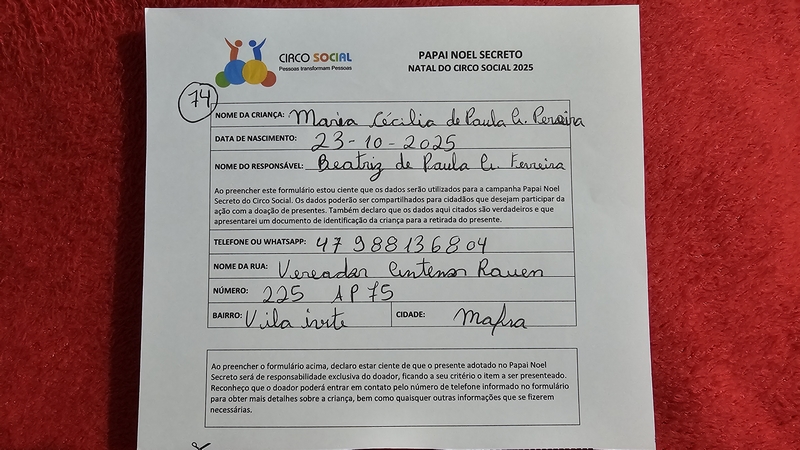 CIRCO SOCIAL
Pessoas transformam Pessoas
PAPAI NOEL SECRETO
NATAL DO CIRCO SOCIAL 2025
74
NOME DA CRIANÇA: Maria Cécilia de Paula G. Pereira
DATA DE NASCIMENTO: 23-10-2025
NOME DO RESPONSÁVEL: Beatriz de Paula G. Ferreira
Ao preencher este formulário estou ciente que os dados serão utilizados para a campanha Papai Noel
Secreto do Circo Social. Os dados poderão ser compartilhados para cidadãos que desejam participar da
ação com a doação de presentes. Também declaro que os dados aqui citados são verdadeiros e que
apresentarei um documento de identificação da criança para a retirada do presente.
TELEFONE OU WHATSAPP: 47 988136804
NOME DA RUA: Vereador Antenor Rauen
NÚMERO: 225 AP 75
BAIRRO: Vila ivete CIDADE: Mafra
Ao preencher o formulário acima, declaro estar ciente de que o presente adotado no Papai Noel
Secreto será de responsabilidade exclusiva do doador, ficando a seu critério o item a ser presenteado.
Reconheço que o doador poderá entrar em contato pelo número de telefone informado no formulário
para obter mais detalhes sobre a criança, bem como quaisquer outras informações que se fizerem
necessárias.